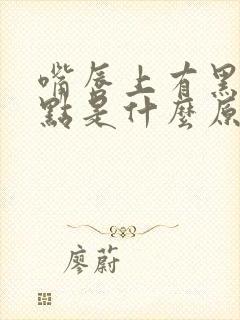 嘴唇上有黑
點是什麼原
廖蔚